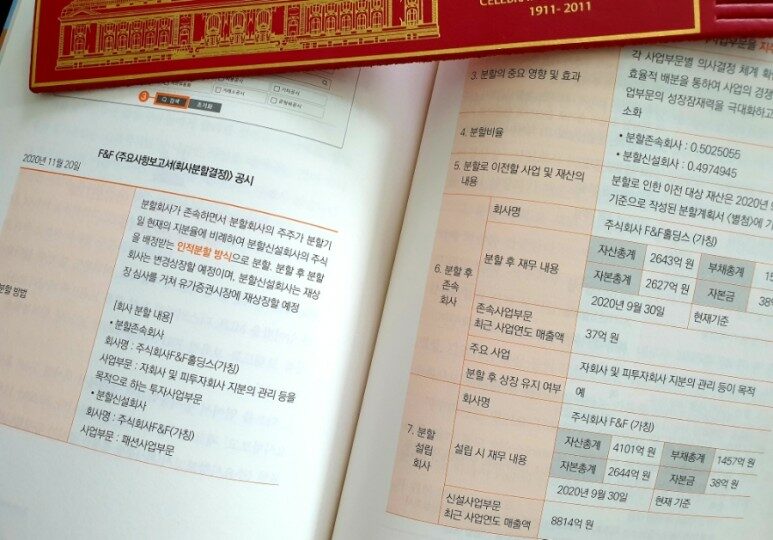 CELEBRA
1911- 2011
기타공시
거래소공시
공정위공시
3
검색
초기화
F&F <주요사항보고서(회사분할결정)> 공시
2020년 11월 20일
분할 방법
분할회사가 존속하면서 분할회사의 주주가 분할기
일 현재의 지분율에 비례하여 분할신설회사의 주식
을 배정받는 인적분할 방식으로 분할. 분할 후 분할
회사는 변경상장할 예정이며, 분할신설회사는 재상
장 심사를 거쳐 유가증권시장에 재상장할 예정
[회사 분할 내용]
• 분할존속회사
회사명 : 주식회사F&F홀딩스(가칭)
사업부문 : 자회사 및 피투자회사 지분의 관리 등을
목적으로 하는 투자사업부문
• 분할신설회사
회사명 : 주식회사F&F(가칭)
사업부문 : 패션사업부문
사업부문을
3. 분할의 중요 영향 및 효과
각 사업부문별 의사결정 체계 확
효율적 배분을 통하여 사업의 경쟁
업부문의 성장잠재력을 극대화하고
소화
4. 분할비율
• 분할존속회사 : 0.5025055
• 분할신설회사 : 0.4974945
5. 분할로 이전할 사업 및 재산의
내용
분할로 인한 이전 대상 재산은 2020년 9
기준으로 작성된 분할계획서 (별첨)에 기
6. 분할 후
존속
회사
회사명
주식회사 F&F홀딩스 (가칭)
분할 후 재무 내용
자산총계 2643억 원 부채총계 15
자본총계 2627억 원 자본금 38억
2020년 9월 30일 현재기준
존속사업부문
최근 사업연도 매출액
37억 원
주요 사업
자회사 및 피투자회사 지분의 관리 등이 목적
분할 후 상장 유지 여부
예
7. 분할
설립
회사
회사명
주식회사 F&F (가칭)
설립 시 재무 내용
자산총계 4101억 원 부채총계 1457억 원
자본총계 2644억 원 자본금 38억 원
2020년 9월 30일 현재 기준
신설사업부문
최근 사업연도 매출액
8814억 원